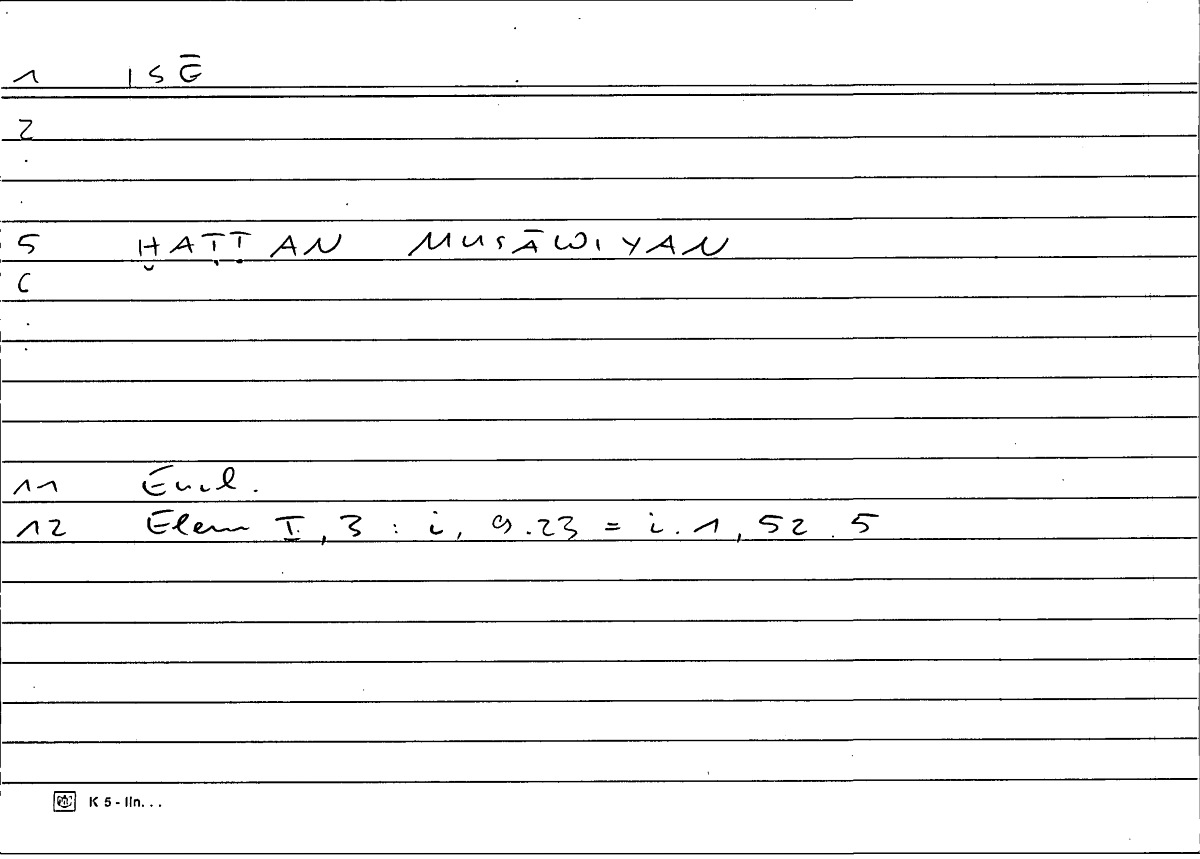 1 ISĒ
2
.
.
5 ḪAṬṬAN MUSĀWIYAN
6
.
.
11 Eucl.
12 Elem I, 3 : i, 9.23 = i.1, 52.5
K 5 - lin...